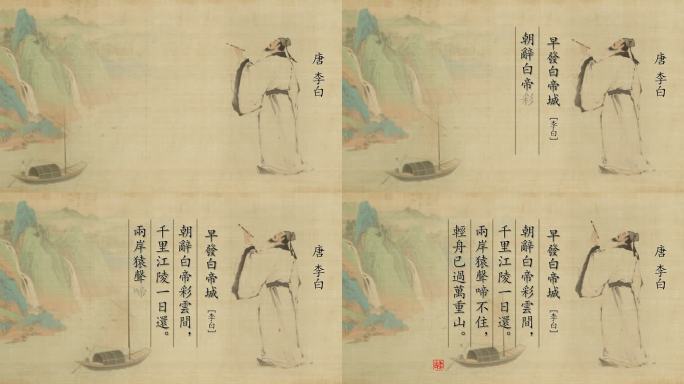 唐 李白
唐 李白
早發白帝城 [李白]
朝辭白帝彩
唐 李白
早發白帝城 [李白]
朝辭白帝彩雲間，
千里江陵一日還。
兩岸猿聲啼
唐 李白
早發白帝城 [李白]
朝辭白帝彩雲間，
千里江陵一日還。
兩岸猿聲啼不住，
輕舟已過萬重山。